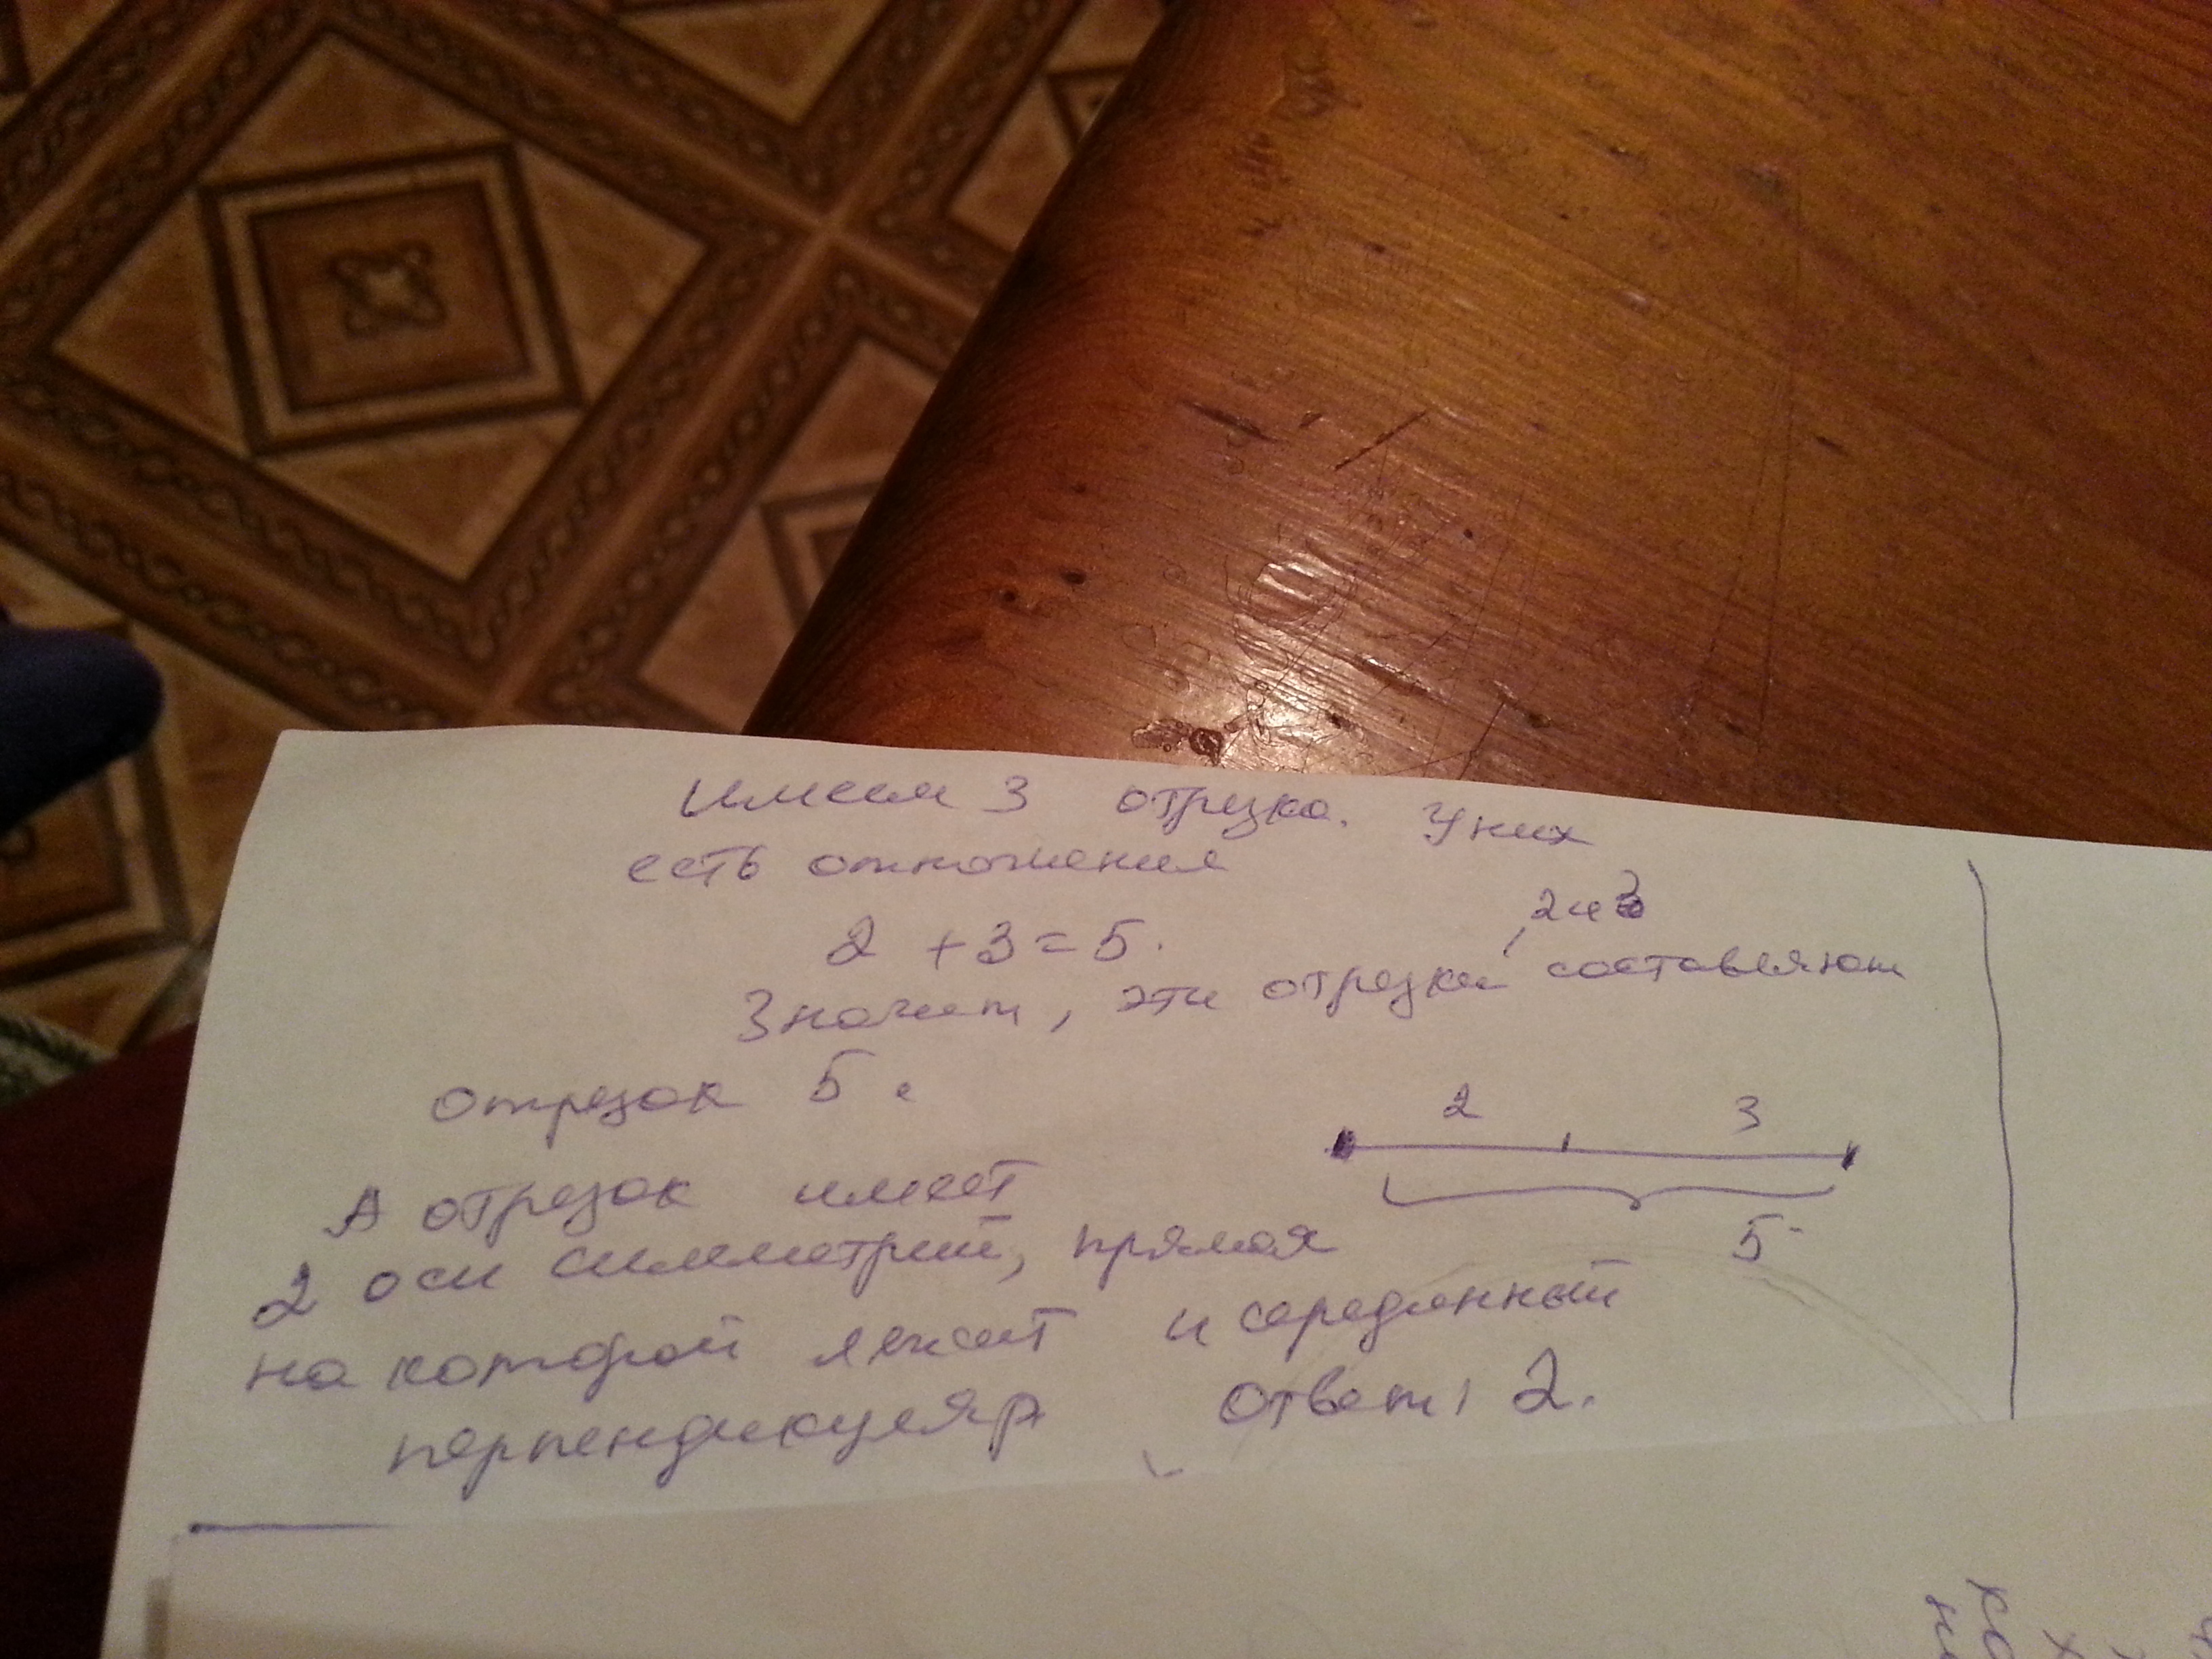 Имеем 3 отрезка. У них
есть отношения
2 + 3 = 5.
, 2 и 3
Значит, эти отрезки составляют
отрезок 5.
2 3
5
А отрезок имеет
2 оси симметрий, прямая
на которой лежит и серединный
перпендикуляр Ответ: 2.